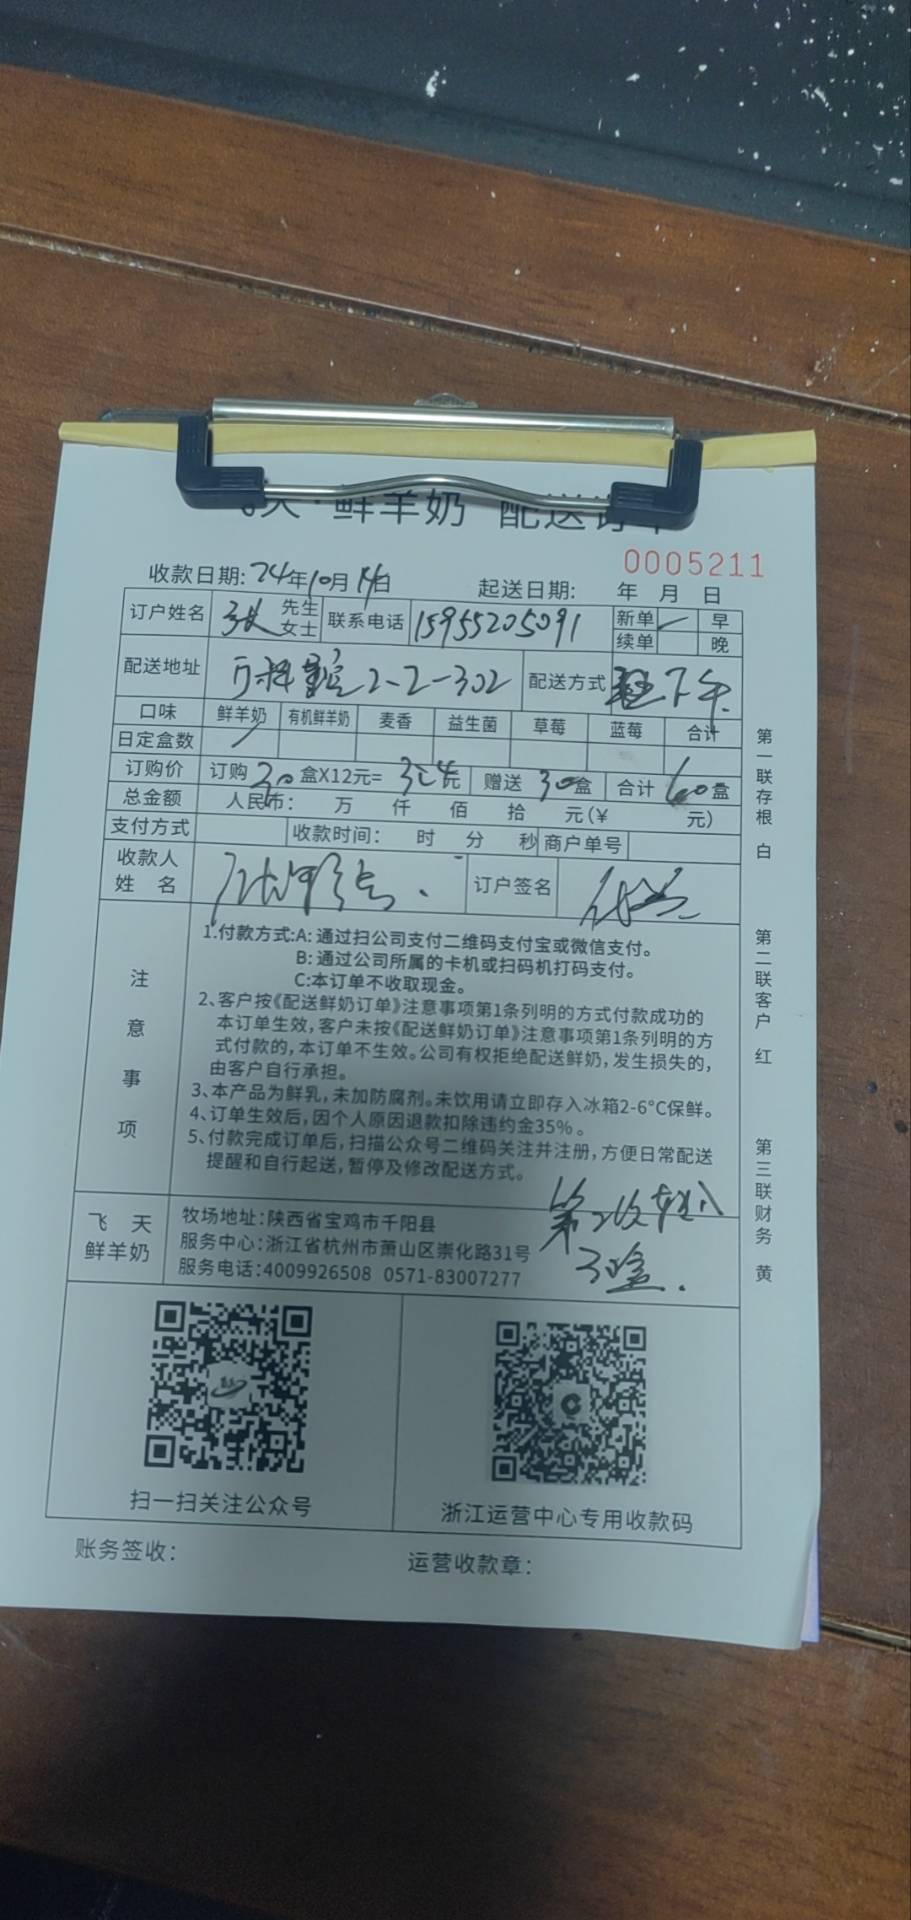 天·鲜羊奶 配送订单
0005211
收款日期:24年10月14日 起送日期: 年 月 日
订户姓名 先生 女士 联系电话 15955205091 新单 早
续单 晚
配送地址 2-2-302 配送方式 下午
口味 鲜羊奶 有机鲜羊奶 麦香 益生菌 草莓 蓝莓 合计
日定盒数
订购价 订购30盒X12元= 元 赠送30盒 合计60盒
总金额 人民币: 万 仟 佰 拾 元(¥ 元)
支付方式 收款时间: 时 分 秒 商户单号
收款人姓名 订户签名
注意事项
1.付款方式:A: 通过扫公司支付二维码支付宝或微信支付。
B: 通过公司所属的卡机或扫码机打码支付。
C:本订单不收取现金。
2、客户按《配送鲜奶订单》注意事项第1条列明的方式付款成功的
本订单生效,客户未按《配送鲜奶订单》注意事项第1条列明的方
式付款的,本订单不生效。公司有权拒绝配送鲜奶,发生损失的,
由客户自行承担。
3、本产品为鲜乳,未加防腐剂。未饮用请立即存入冰箱2-6°C保鲜。
4、订单生效后,因个人原因退款扣除违约金35%。
5、付款完成订单后,扫描公众号二维码关注并注册,方便日常配送
提醒和自行起送,暂停及修改配送方式。
飞天
鲜羊奶
牧场地址:陕西省宝鸡市千阳县
服务中心:浙江省杭州市萧山区崇化路31号
服务电话:4009926508 0571-83007277
扫一扫关注公众号
浙江运营中心专用收款码
账务签收:
运营收款章:
第一联存根 白
第二联客户 红
第三联财务 黄